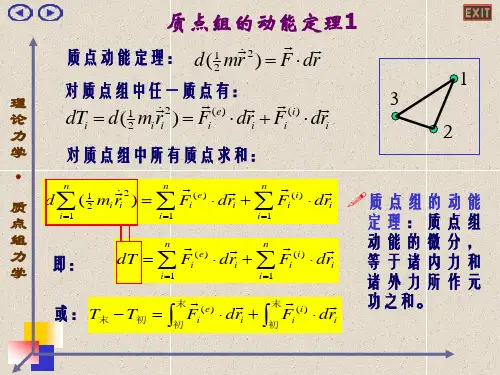 质点组的动能定理1
EXIT
质点动能定理： $d(\frac{1}{2} m\dot{\vec{r}}^2) = \vec{F} \cdot d\vec{r}$
对质点组中任一质点有：
$dT_i = d(\frac{1}{2} m_i\dot{\vec{r}}_i^2) = \vec{F}_i^{(e)} \cdot d\vec{r}_i + \vec{F}_i^{(i)} \cdot d\vec{r}_i$
1
3
2
对质点组中所有质点求和：
$d\sum_{i=1}^{n} (\frac{1}{2} m_i\dot{\vec{r}}_i^2) = \sum_{i=1}^{n} \vec{F}_i^{(e)} \cdot d\vec{r}_i + \sum_{i=1}^{n} \vec{F}_i^{(i)} \cdot d\vec{r}_i$
即： $dT = \sum_{i=1}^{n} \vec{F}_i^{(e)} \cdot d\vec{r}_i + \sum_{i=1}^{n} \vec{F}_i^{(i)} \cdot d\vec{r}_i$
或： $T_末 - T_初 = \int_初^末 \vec{F}_i^{(e)} \cdot d\vec{r}_i + \int_初^末 \vec{F}_i^{(i)} \cdot d\vec{r}_i$
质点组的动能
定理：质点组
动能的微分，
等于诸内力和
诸外力所作元
功之和。
理论力学·质点组力学